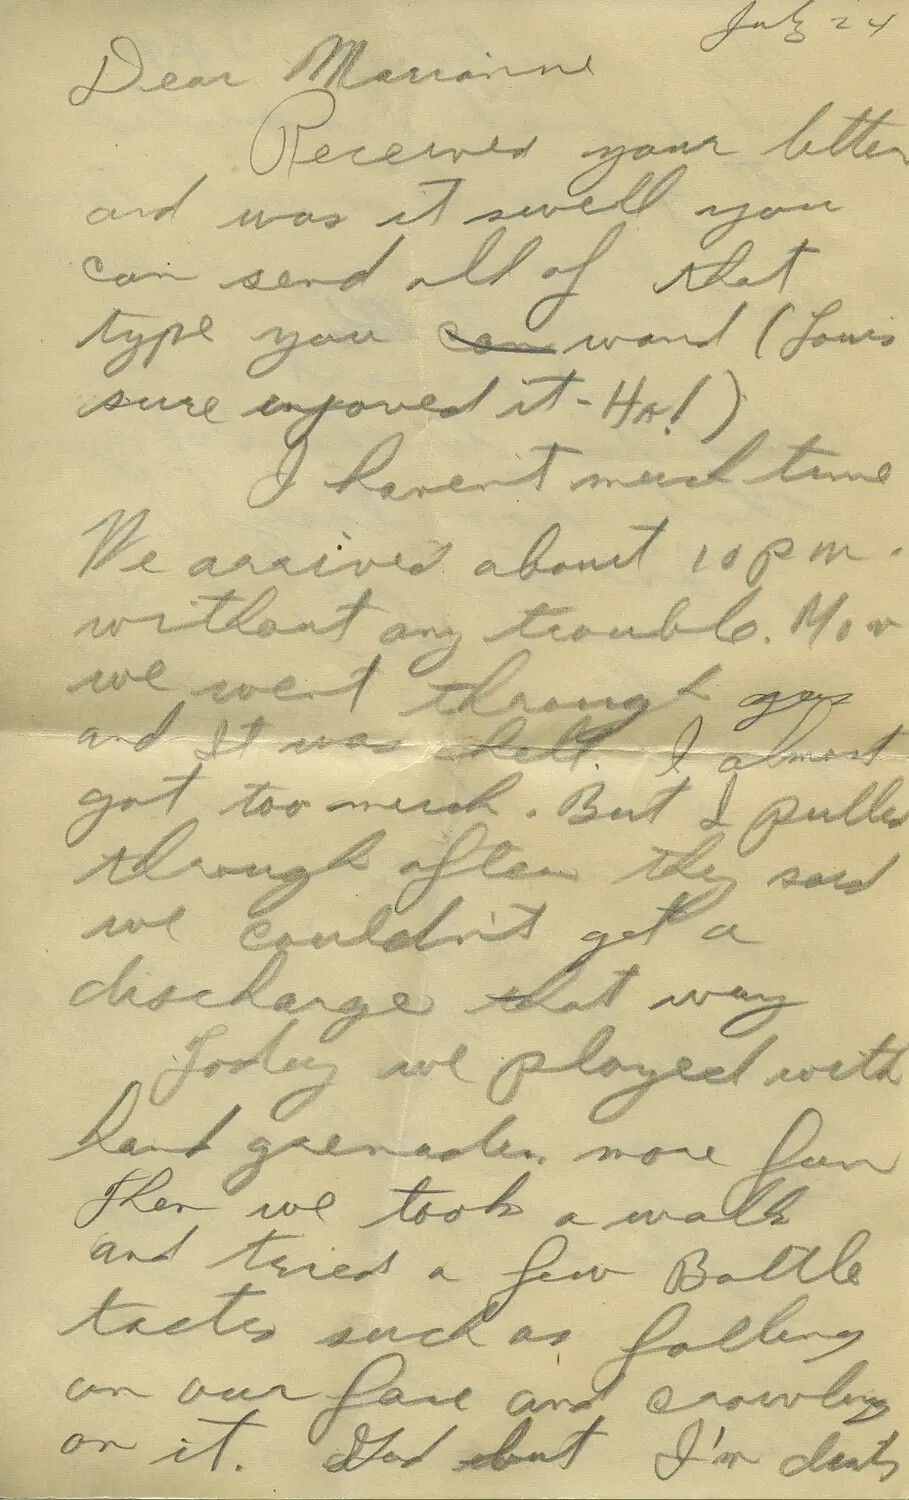 July 24
Dear Marianne
Received your letter
and was it swell you
can send all of that
type you can want (Louis
sure enjoyed it - Ha!)
I haven't much time
We arrived about 10 p m.
without any trouble. Mon
we went through gas
and It was hell. I almost
got too much. But I pulled
through after they said
we couldn't get a
discharge that way
Today we played with
hand grenades. more fun
Then we took a walk
and tried a few Battle
tacts such as falling
on our face and crawling
on it. God but I'm dirty